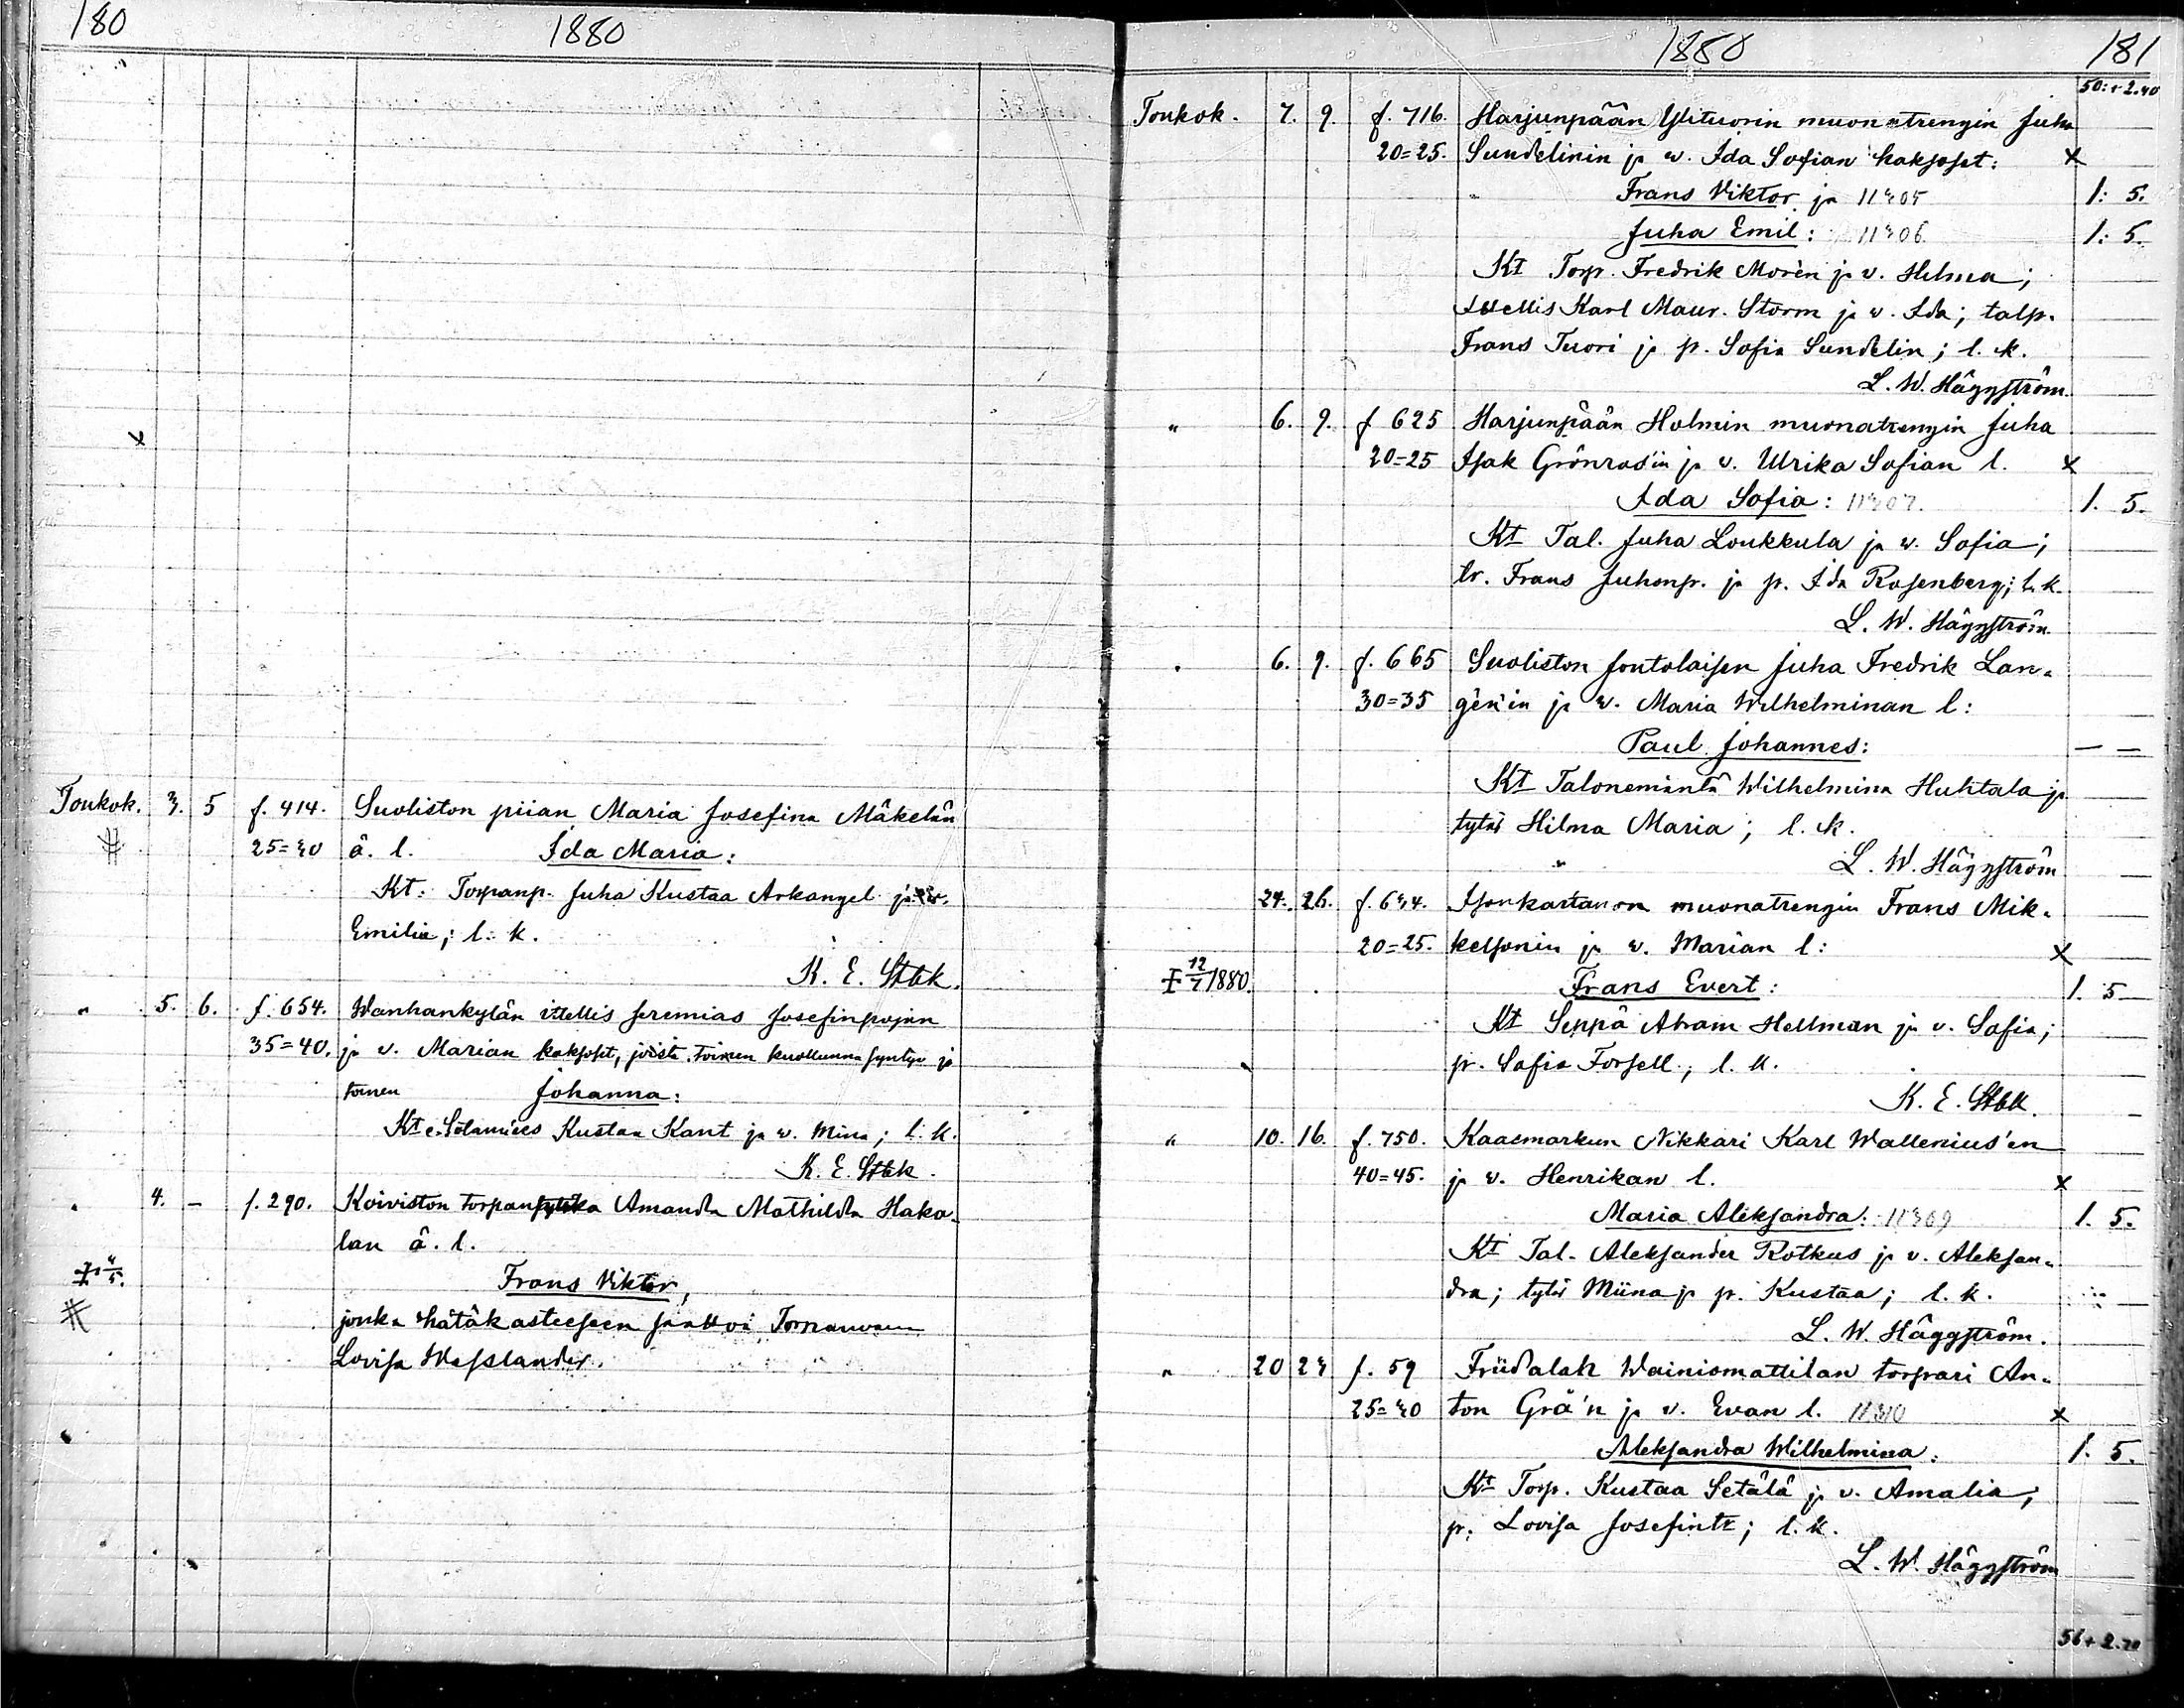 180 1880
Toukok. 3. 5 f. 414. Suoliston piian Maria Josefina Mäkelän
25=30 ä. l. Ida Maria:
Kt: Torpanp. Juha Kustaa Arkangel ja w.
Emilia; l. k.
K. E. Stbk.
" 5. 6. f. 654. Wanhankylän itellis Jeremias Josefinpojan
35=40. ja v. Marian kaksoset, joista toinen kuolluna syntyi ja
toinen Johanna:
Kt e. Sotamies Kustaa Kant ja w. Mina; l. k.
K. E. Stbk.
" 4. – f. 290. Koiviston torpan Amanda Mathilda Haka-
lan ä. l.
Frans Viktor,
jonka hätäkasteeseen saattoi
Lovisa Wesslander.
1880 181
50:+2.40
Toukok. 7. 9. f. 716. Harjunpään Ylituorin muonatrengin Juha
20=25. Sundelinin ja w. Ida Sofian kaksoset: x
Frans Viktor ja 11305 1: 5.
Juha Emil: 11306 1: 5.
Kt Torp. Fredrik Morèn ja v. Helma;
Itellis Karl Maur. Storm ja w. Ida; talp.
Frans Tuori ja p. Sofia Sundelin; l. k.
L. W. Häggström.
" 6. 9. f 625 Harjunpään Holmin muonatrengin Juha
20=25 Isak Grönroos'in ja v. Ulrika Sofian l. x
Ida Sofia: 11307. 1. 5.
Kt Tal. Juha Loukkula ja w. Sofia;
tr. Frans Juhonp. ja p. Ida Rosenberg; l. k.
L. W. Häggström.
" 6. 9. f. 665 Suoliston Juha Fredrik Lan-
30=35 gén'in ja w. Maria Wilhelminan l:
Paul Johannes: — =
Kt Talonemäntä Wilhelmina Huhtala ja
tytär Hilma Maria; l. k.
L. W. Häggström
24. 26. f. 634. Isonkartanon muonatrengin Frans Mik-
20=25. kelsonin ja w. Marian l: x
12/7 1880. Frans Evert: 1. 5
Kt Seppä Abram Hellman ja v. Sofia;
p. Sofia Forsell; l. k.
K. E. Stbk.
" 10. 16. f. 750. Kaasmarkun Nikkari Karl Wallenius'en
40=45. ja v. Henrikan l. x
Maria Aleksandra: 11309 1. 5.
Kt Tal. Aleksander Rotkus ja v. Aleksan-
dra; tytär Miina ja p. Kustaa; l. k.
L. W. Häggström.
" 20 23 f. 59 Friidalah Wainiomattilan torpari An-
25=30 ton Grä'n ja v. Evan l. 11310 x
Aleksandra Wilhelmina: 1. 5.
Kt Torp. Kustaa Setälä ja v. Amalia;
p. Lovisa Josefintr; l. k.
L. W. Häggström